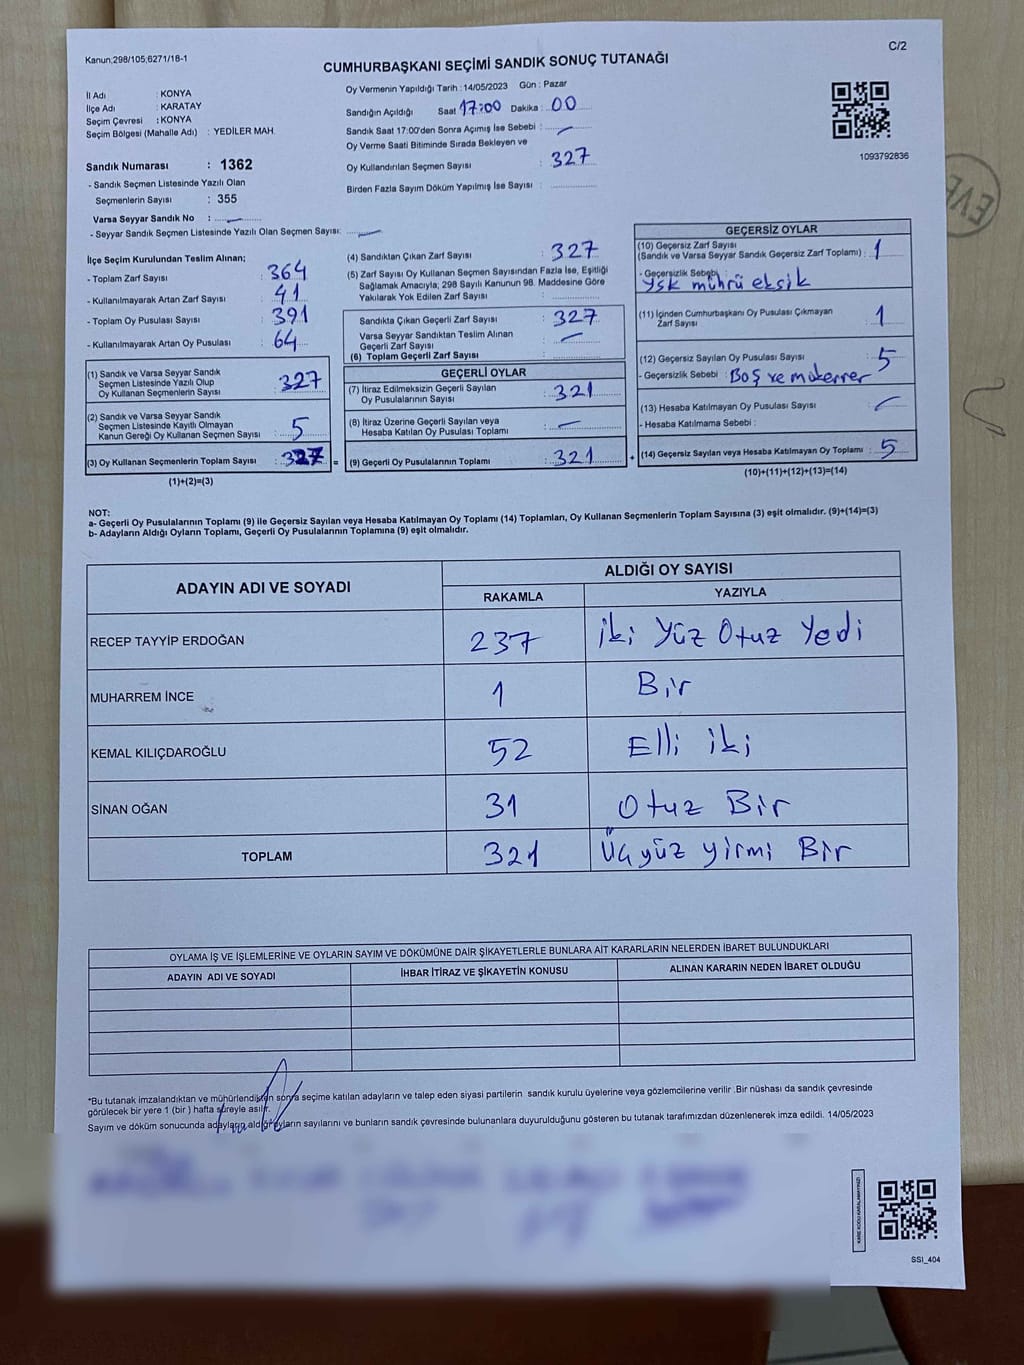 Kanun;298/105;6271/18-1
C/2
CUMHURBAŞKANI SEÇİMİ SANDIK SONUÇ TUTANAĞI
İl Adı : KONYA
İlçe Adı : KARATAY
Seçim Çevresi : KONYA
Seçim Bölgesi (Mahalle Adı) : YEDİLER MAH.
Sandık Numarası : 1362
- Sandık Seçmen Listesinde Yazılı Olan
Seçmenlerin Sayısı : 355
Varsa Seyyar Sandık No :
- Seyyar Sandık Seçmen Listesinde Yazılı Olan Seçmen Sayısı:
Oy Vermenin Yapıldığı Tarih :14/05/2023 Gün : Pazar
Sandığın Açıldığı Saat 17:00 Dakika : 00
Sandık Saat 17:00'den Sonra Açımış İse Sebebi :
Oy Verme Saati Bitiminde Sırada Bekleyen ve
Oy Kullandırılan Seçmen Sayısı : 327
Birden Fazla Sayım Döküm Yapılmış İse Sayısı :
1093792836
EVE
İlçe Seçim Kurulundan Teslim Alınan;
- Toplam Zarf Sayısı : 364
- Kullanılmayarak Artan Zarf Sayısı : 41
- Toplam Oy Pusulası Sayısı : 391
- Kullanılmayarak Artan Oy Pusulası : 64
(1) Sandık ve Varsa Seyyar Sandık
Seçmen Listesinde Yazılı Olup
Oy Kullanan Seçmenlerin Sayısı : 327
(2) Sandık ve Varsa Seyyar Sandık
Seçmen Listesinde Kayıtlı Olmayan
Kanun Gereği Oy Kullanan Seçmen Sayısı : 5
(3) Oy Kullanan Seçmenlerin Toplam Sayısı : 327 =
(1)+(2)=(3)
(4) Sandıktan Çıkan Zarf Sayısı : 327
(5) Zarf Sayısı Oy Kullanan Seçmen Sayısından Fazla İse, Eşitliği
Sağlamak Amacıyla; 298 Sayılı Kanunun 98. Maddesine Göre
Yakılarak Yok Edilen Zarf Sayısı :
Sandıkta Çıkan Geçerli Zarf Sayısı : 327
Varsa Seyyar Sandıktan Teslim Alınan
Geçerli Zarf Sayısı :
(6) Toplam Geçerli Zarf Sayısı :
GEÇERLİ OYLAR
(7) İtiraz Edilmeksizin Geçerli Sayılan
Oy Pusulalarının Sayısı : 321
(8) İtiraz Üzerine Geçerli Sayılan veya
Hesaba Katılan Oy Pusulası Toplamı :
(9) Geçerli Oy Pusulalarının Toplamı : 321 +
GEÇERSİZ OYLAR
(10) Geçersiz Zarf Sayısı
(Sandık ve Varsa Seyyar Sandık Geçersiz Zarf Toplamı) : 1
- Geçersizlik Sebebi :
Ysk mührü eksik
(11) İçinden Cumhurbaşkanı Oy Pusulası Çıkmayan
Zarf Sayısı : 1
(12) Geçersiz Sayılan Oy Pusulası Sayısı : 5
- Geçersizlik Sebebi : Boş ve mükerrer
(13) Hesaba Katılmayan Oy Pusulası Sayısı :
- Hesaba Katılmama Sebebi :
(14) Geçersiz Sayılan veya Hesaba Katılmayan Oy Toplamı : 5
(10)+(11)+(12)+(13)=(14)
NOT:
a- Geçerli Oy Pusulalarının Toplamı (9) ile Geçersiz Sayılan veya Hesaba Katılmayan Oy Toplamı (14) Toplamları, Oy Kullanan Seçmenlerin Toplam Sayısına (3) eşit olmalıdır. (9)+(14)=(3)
b- Adayların Aldığı Oyların Toplamı, Geçerli Oy Pusulalarının Toplamına (9) eşit olmalıdır.
ADAYIN ADI VE SOYADI
ALDIĞI OY SAYISI
RAKAMLA YAZIYLA
RECEP TAYYİP ERDOĞAN 237 iki Yüz Otuz Yedi
MUHARREM İNCE 1 Bir
KEMAL KILIÇDAROĞLU 52 Elli iki
SİNAN OĞAN 31 Otuz Bir
TOPLAM 321 Üçyüz yirmi Bir
OYLAMA İŞ VE İŞLEMLERİNE VE OYLARIN SAYIM VE DÖKÜMÜNE DAİR ŞİKAYETLERLE BUNLARA AİT KARARLARIN NELERDEN İBARET BULUNDUKLARI
ADAYIN ADI VE SOYADI İHBAR İTİRAZ VE ŞİKAYETİN KONUSU ALINAN KARARIN NEDEN İBARET OLDUĞU
*Bu tutanak imzalandıktan ve mühürlendikten sonra seçime katılan adayların ve talep eden siyasi partilerin sandık kurulu üyelerine veya gözlemcilerine verilir .Bir nüshası da sandık çevresinde
görülecek bir yere 1 (bir ) hafta süreyle asılır.
Sayım ve döküm sonucunda adayların aldığı oyların sayılarını ve bunların sandık çevresinde bulunanlara duyurulduğunu gösteren bu tutanak tarafımızdan düzenlenerek imza edildi. 14/05/2023
KARE KODU KARALAMAYINIZ!
SSI_404